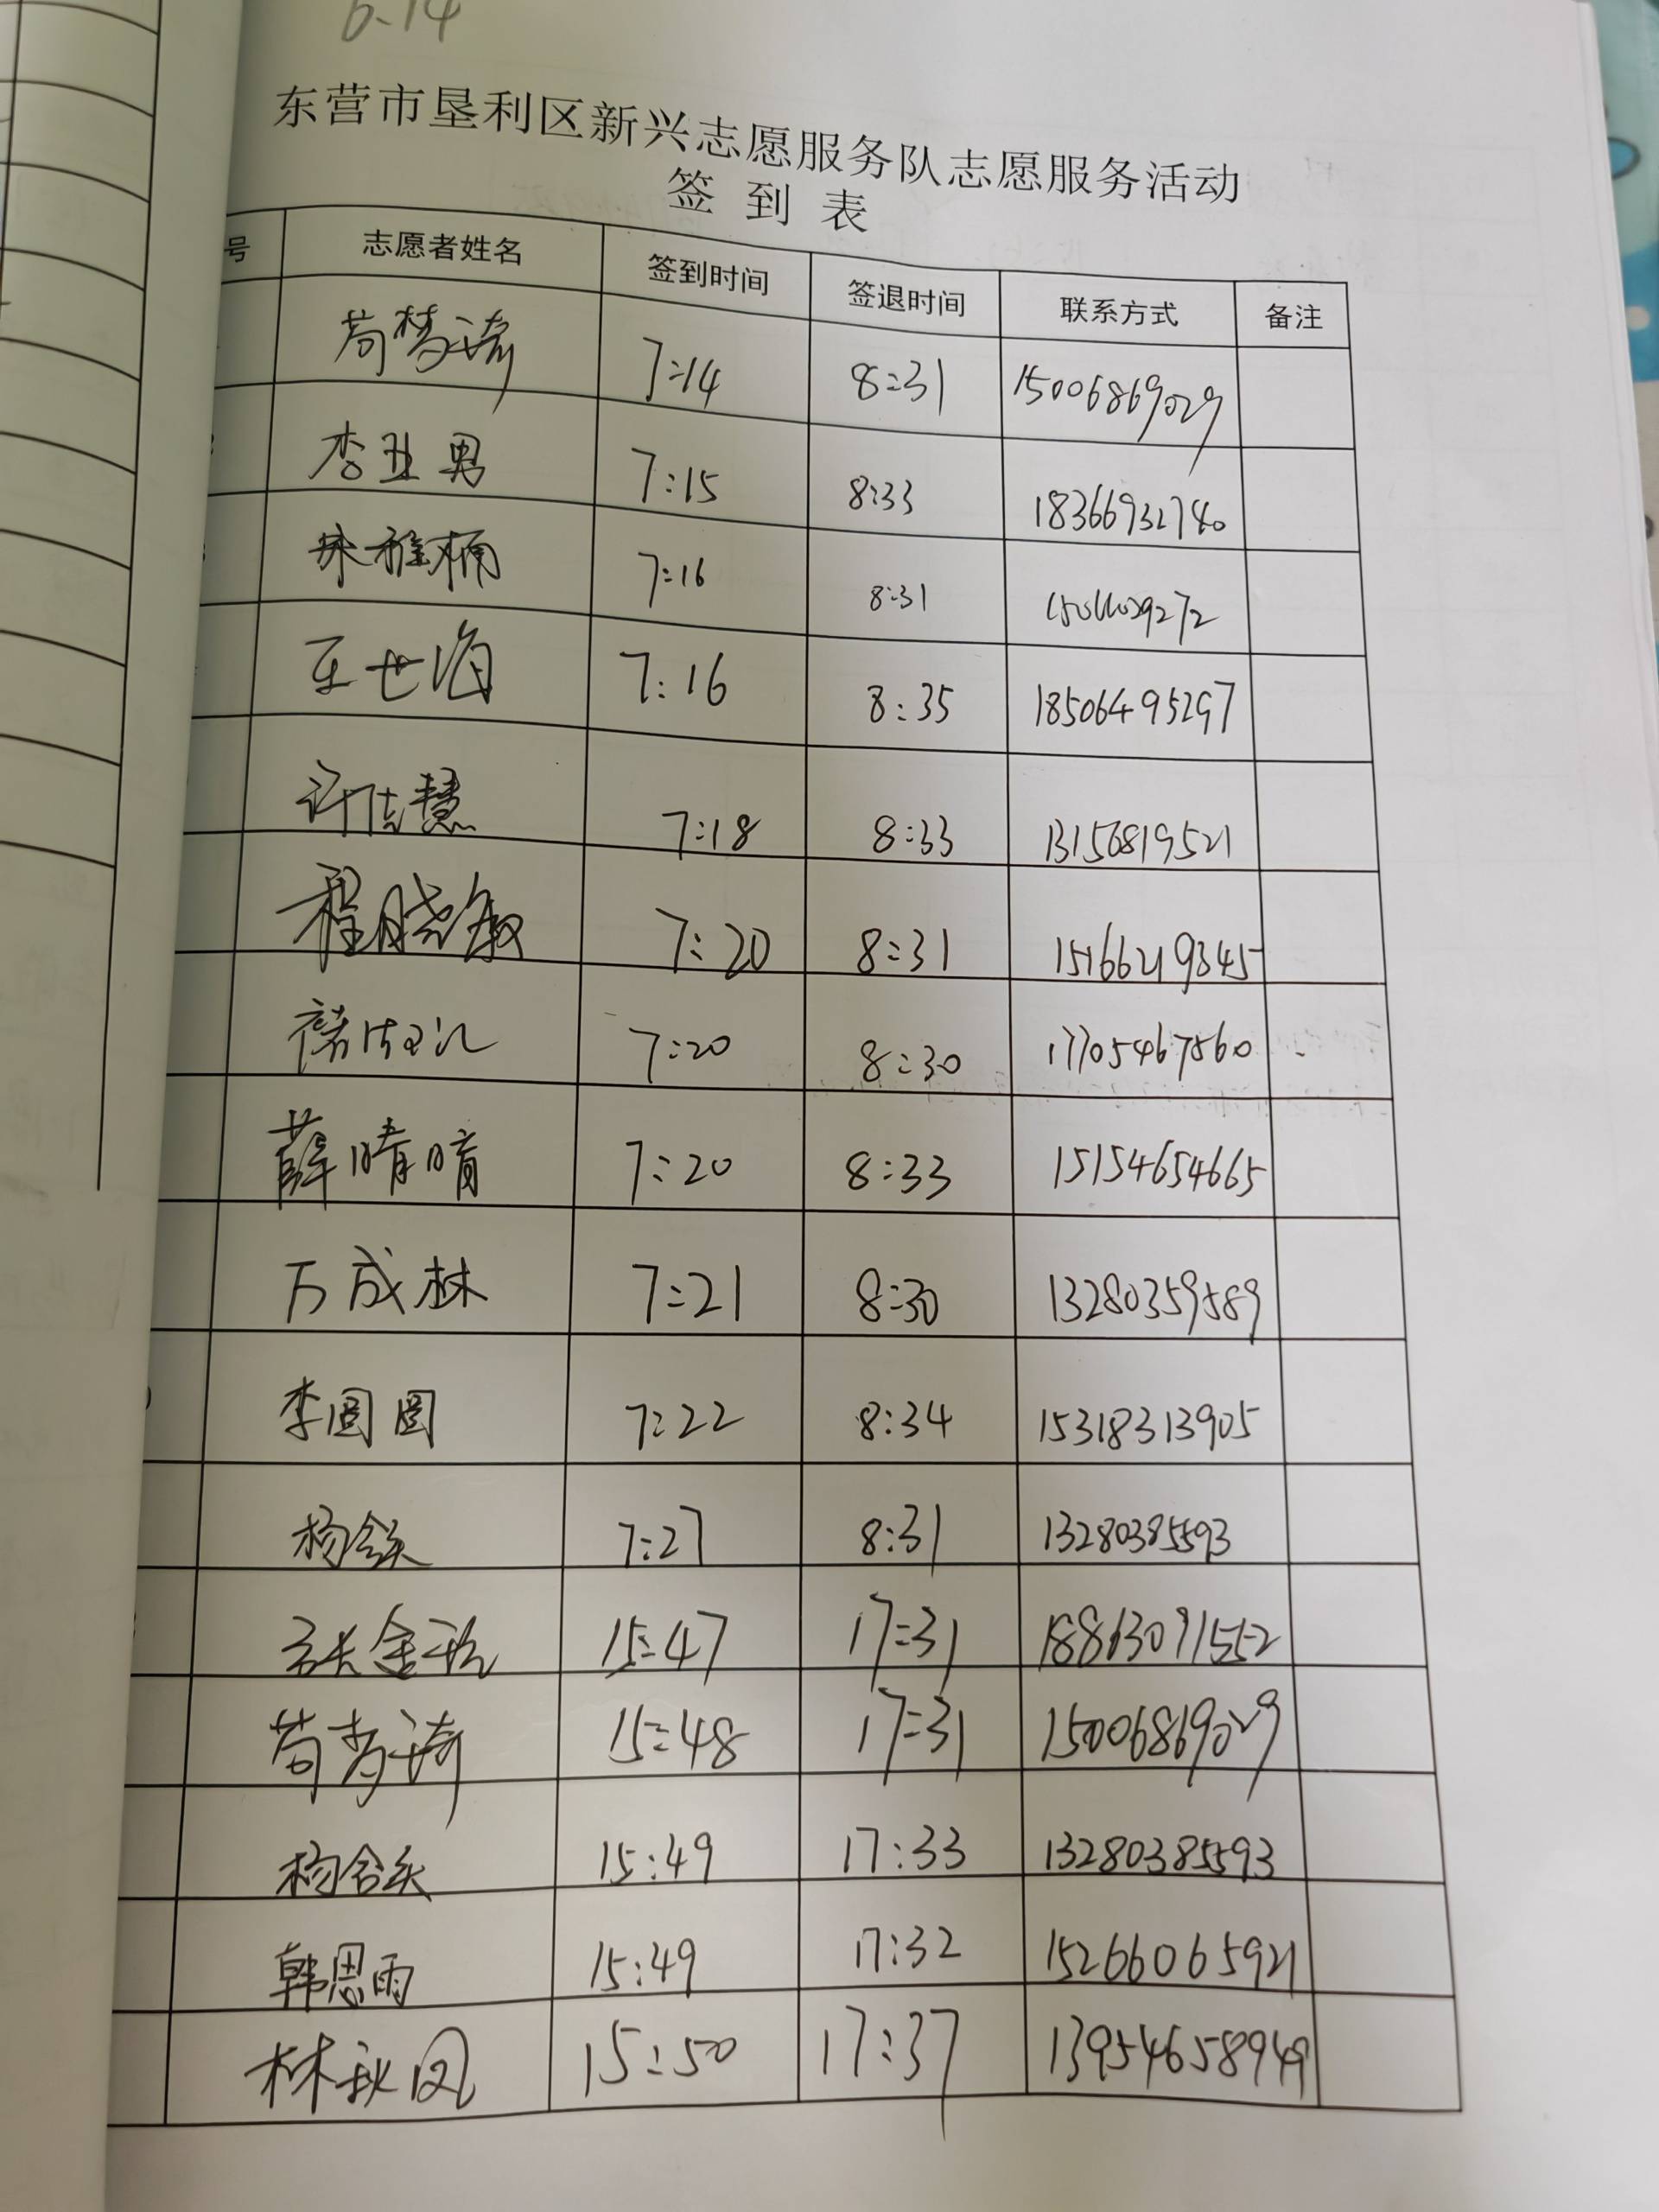 6.14
东营市垦利区新兴志愿服务队志愿服务活动
签到表
号 志愿者姓名 签到时间 签退时间 联系方式 备注
苟梦琦 7:14 8:31 15006869029
李亚男 7:15 8:33 18366932740
雅楠 7:16 8:31
王世海 7:16 8:35 18506495297
许志慧 7:18 8:33 13156819521
程晓敏 7:20 8:31 15166219345
7:20 8:30 17705467560
薛晴晴 7:20 8:33 15154654665
万成林 7:21 8:30 13280359589
李圆圆 7:22 8:34 15318313905
杨 7:27 8:31 13280385593
张金 15:47 17:31 18863091552
苟梦琦 15:48 17:31 15006869029
杨 15:49 17:33 13280385593
韩思雨 15:49 17:32 15266065921
林秋凤 15:50 17:37 13954658949